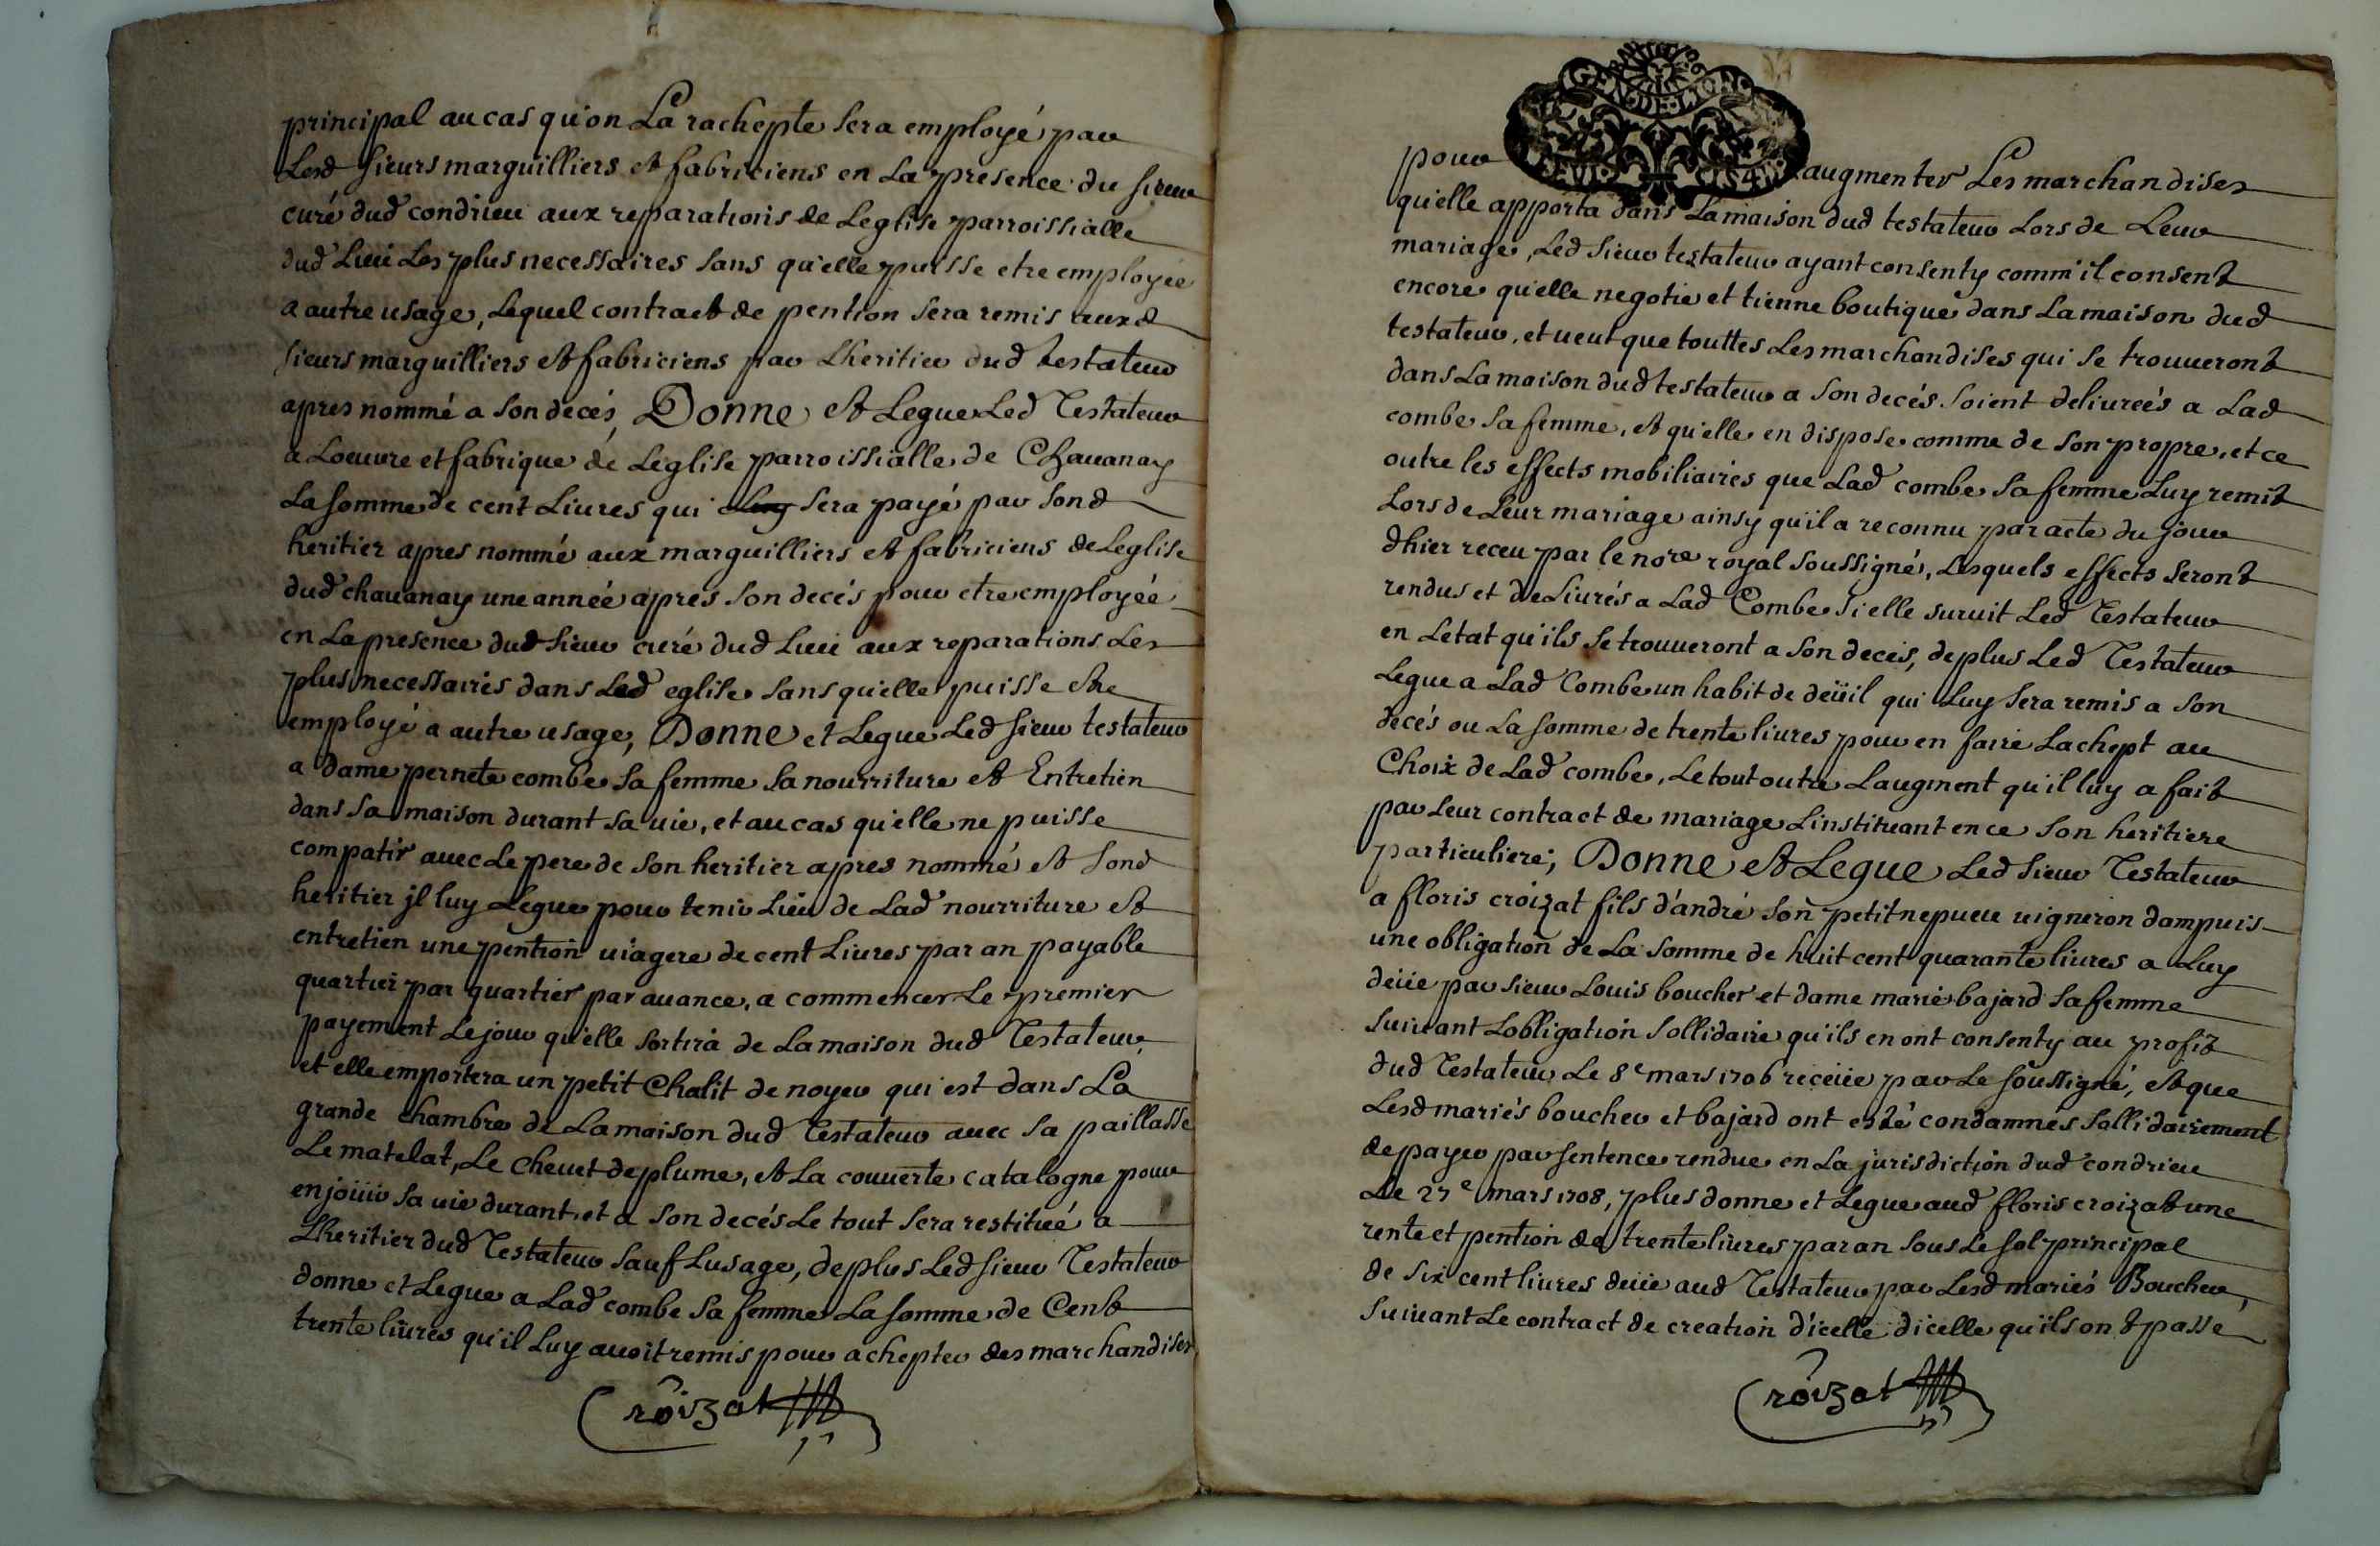 principal au cas qu'on La rachepte sera employé par
Lesd sieurs marguilliers et fabriciens en La presence du sieur
curé dud condrieu aux reparations de Leglise parroissialle
dud Lieu Les plus necessaires sans qu'elle puisse etre employée
a autre usage, Lequel contract de pention sera remis auxd
sieurs marguilliers et fabriciens par Lheritier dud testateur
apres nommé a son decés, Donne et Legue Led Testateur
a Loeuvre et fabrique de Leglise parroissialle de Chauanay
La somme de cent Liures qui sera payé par sond
heritier apres nommé aux marguilliers et fabriciens de Leglise
dud chauanay une année apres son decés pour etre employée
en La presence dud sieur curé dud Lieu aux reparations Les
plus necessaires dans Lad eglise sans qu'elle puisse etre
employé a autre usage, Donne et Legue Led sieur testateur
a dame pernete combe sa femme sa nourriture et Entretien
dans sa maison durant sa uie, et au cas qu'elle ne puisse
compatir auec Le pere de son heritier apres nommé et sond
heritier jl luy Legue pour tenir Lieu de Lad nourriture et
entretien une pention uiagere de cent Liures par an payable
quartier par quartier par auance, a commencer Le premier
payement Le jour qu'elle sortira de La maison dud Testateur
et elle emportera un petit Chalit de noyer qui est dans La
grande chambre de La maison dud Testateur auec sa paillasse
Le matelat, Le Cheuet de plume, et La couuerte catalogne pour
en joüir sa uie durant, et a son decés Le tout sera restitué a
Lheritier dud Testateur sauf Lusage, de plus Led sieur Testateur
donne et Legue a Lad combe sa femme La somme de Cent
trente liures qu'il Luy auoit remis pour achepter des marchandises
Croizat
pour augmenter Les marchandises
qu'elle apporta dans La maison dud testateur Lors de Leur
mariage, Led sieur testateur ayant consenty comm'il consent
encore qu'elle negotie et tienne boutique dans La maison dud
testateur, et ueut que touttes Les marchandises qui se trouueront
dans La maison dud testateur a son decés soient deliurées a Lad
combe sa femme, et qu'elle en dispose comme de son propre, et ce
outre les effects mobiliaires que Lad combe sa femme Luy remit
Lors de Leur mariage ainsy qu'il a reconnu par acte du jour
dhier receu par le nore royal soussigné, Lesquels effects seront
rendus et deLiurés a Lad Combe si elle suruit Led Testateur
en Letat qu'ils se trouueront a son decés, de plus Led Testateur
Legue a Lad Combe un habit de deüil qui Luy sera remis a son
decés ou La somme de trente liures pour en faire Lachept au
Choix de Lad combe, Le tout outre Laugment qu'il luy a fait
par Leur contract de mariage Linstituant en ce son heritiere
particuliere; Donne et Legue Led sieur Testateur
a floris croizat fils d'andré son petit nepueu uigneron dampuis
une obligation de La somme de huit cent quarante liures a Luy
deüe par sieur Louis boucher et dame marie bajard sa femme
suiuant Lobligation sollidaire qu'ils en ont consenty au profit
dud Testateur Le 8e mars 1706 receüe par Le soussigné, et que
Lesd mariés boucher et bajard ont esté condamnés sollidairement
de payer par sentence rendue en La jurisdiction dud condrieu
Le 27e mars 1708, plus donne et Legue aud floris croizat une
rente et pention de trente liures par an sous Le sol principal
de six cent liures deüe aud Testateur par Lesd mariés Boucher,
suiuant Le contract de creation d'icelle dicelle qu'ils ont passe
Croizat